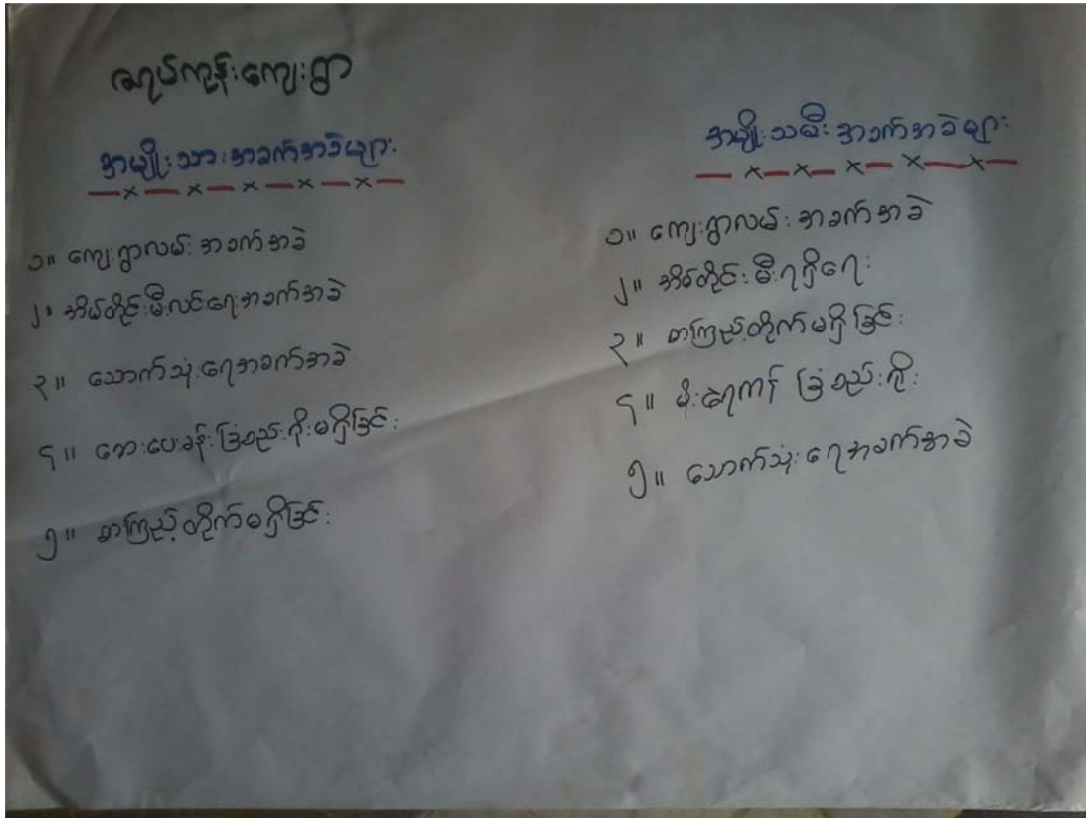 ကုန်းကျေးရွာ
အမျိုးသားအခက်အခဲများ
၁။ ကျေးရွာလမ်းအခက်အခဲ
၂။ အိမ်တိုင်းမီးလင်းရေးအခက်အခဲ
၃။ သောက်သုံးရေအခက်အခဲ
၄။ ဆေးပေးခန်းခြံစည်းရိုးမရှိခြင်း
၅။ စာကြည့်တိုက်မရှိခြင်း
အမျိုးသမီးအခက်အခဲများ
၁။ ကျေးရွာလမ်းအခက်အခဲ
၂။ အိမ်တိုင်းမီးရရှိရေး
၃။ စာကြည့်တိုက်မရှိခြင်း
၄။ မိုးရေကန် ခြံစည်းရိုး
၅။ သောက်သုံးရေအခက်အခဲ